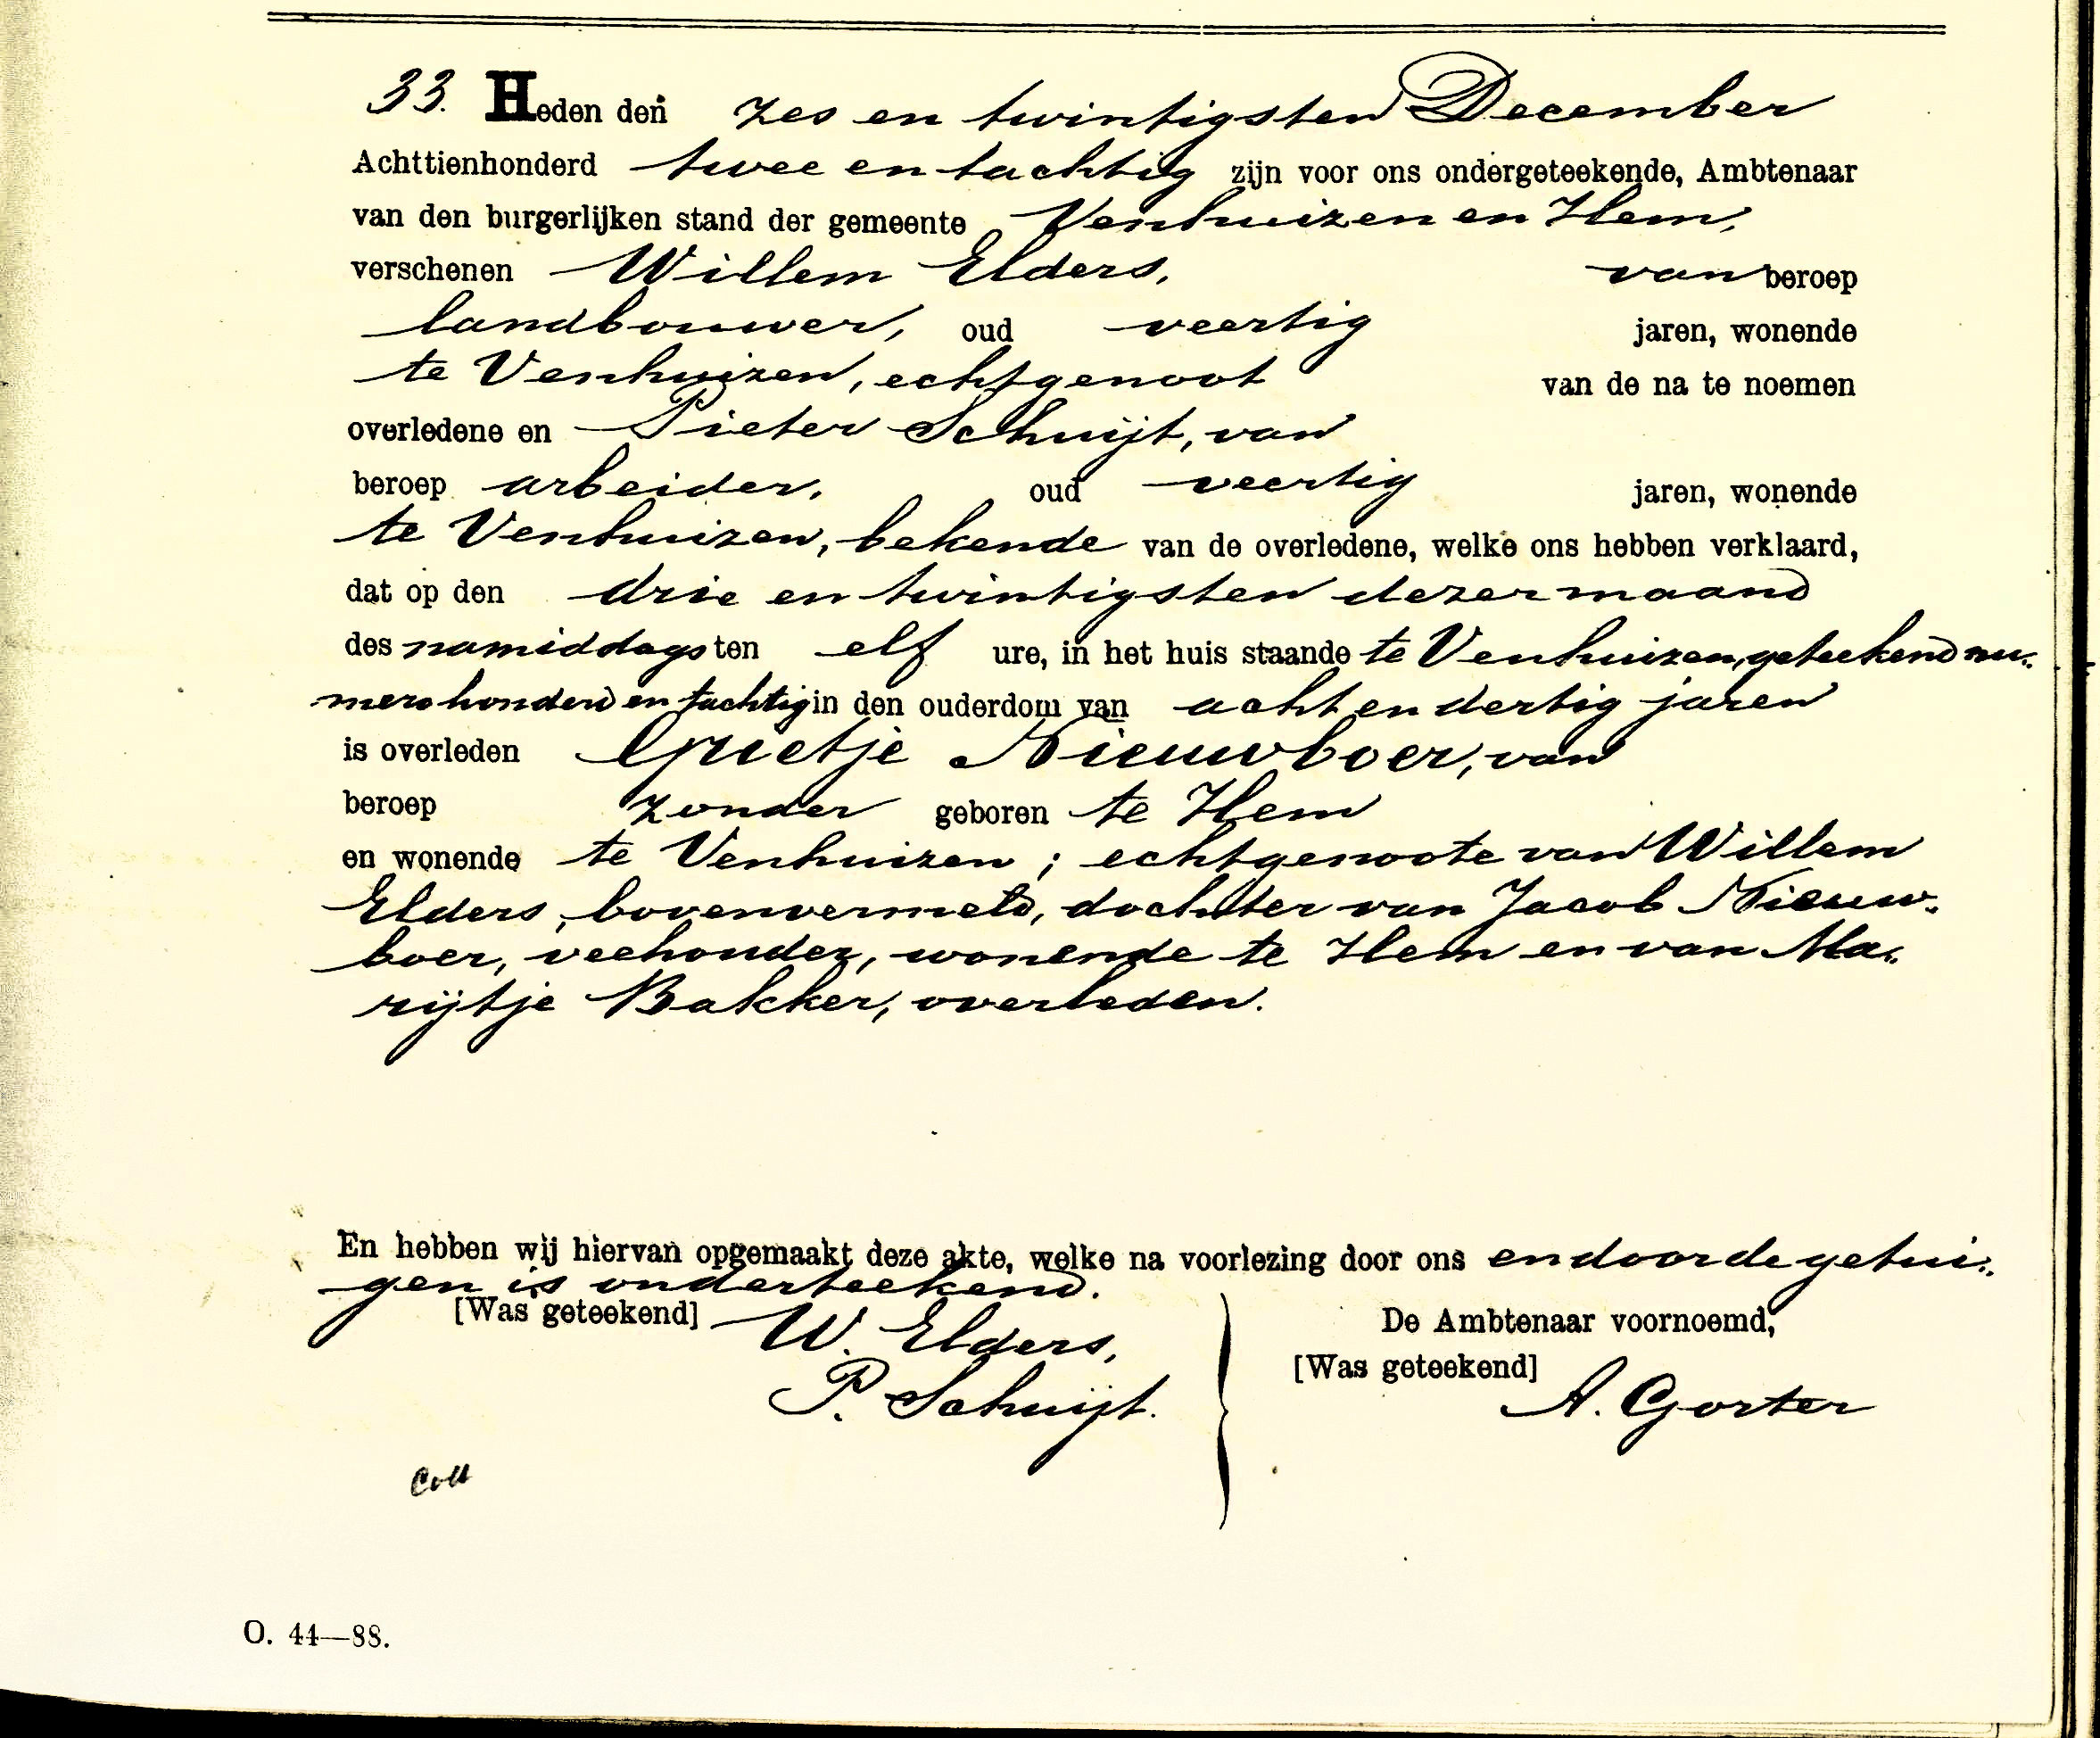 33. Heden den zes en twintigsten December
Achttienhonderd twee en tachtig zijn voor ons ondergeteekende, Ambtenaar
van den burgerlijken stand der gemeente Venhuizen en Hem,
verschenen Willem Elders, van beroep
landbouwer, oud veertig jaren, wonende
te Venhuizen, echtgenoot van de na te noemen
overledene en Pieter Schuijt, van
beroep arbeider, oud veertig jaren, wonende
te Venhuizen, bekende van de overledene, welke ons hebben verklaard,
dat op den drie en twintigsten dezer maand
des namiddags ten elf ure, in het huis staande te Venhuizen, geteekend nu-
mero honderd en tachtig in den ouderdom van acht en dertig jaren
is overleden Grietje Nieuwboer, van
beroep zonder geboren te Hem
en wonende te Venhuizen; echtgenoote van Willem
Elders, bovenvermeld, dochter van Jacob Nieuw-
boer, veehouder, wonende te Hem en van Ma-
rijtje Bakker, overleden.
En hebben wij hiervan opgemaakt deze akte, welke na voorlezing door ons en door de getui-
gen is onderteekend.
[Was geteekend] W. Elders,
P. Schuijt.
De Ambtenaar voornoemd,
[Was geteekend]
A. Gorter
Coll
O. 44—88.